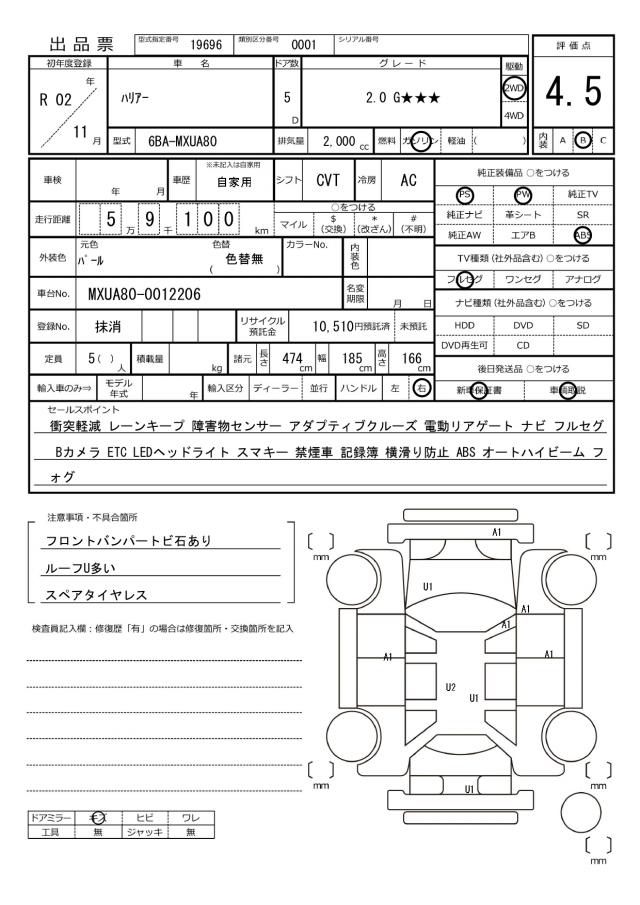 出品票 型式指定番号 19696 類別区分番号 0001 シリアル番号
評価点
4.5
内装 A B C
初年度登録 車名 ドア数 グレード 駆動
R 02 年 11 月
ハリアー
5 D
2.0 G★★★
2WD
4WD
型式 6BA-MXUA80 排気量 2,000 cc 燃料 ガソリン 軽油 ( )
車検 年 月 車歴 ※未記入は自家用 自家用 シフト CVT 冷房 AC
走行距離 5 万 9 千 1 0 0 km
○をつける
マイル $ (交換) * (改ざん) # (不明)
外装色 元色 パール 色替 ( 色替無 ) カラーNo. 内装色
車台No. MXUA80-0012206 名変期限 月 日
登録No. 抹消 リサイクル預託金 10,510円預託済 未預託
定員 5( ) 人 積載量 kg 諸元 長さ 474 cm 幅 185 cm 高さ 166 cm
輸入車のみ⇒ モデル年式 年 輸入区分 ディーラー 並行 ハンドル 左 右
純正装備品 ○をつける
PS PW 純正TV
純正ナビ 革シート SR
純正AW エアB ABS
TV種類 (社外品含む) ○をつける
フルセグ ワンセグ アナログ
ナビ種類 (社外品含む) ○をつける
HDD DVD SD
DVD再生可 CD
後日発送品 ○をつける
新車保証書 車輌取説
セールスポイント
衝突軽減 レーンキープ 障害物センサー アダプティブクルーズ 電動リアゲート ナビ フルセグ
Bカメラ ETC LEDヘッドライト スマキー 禁煙車 記録簿 横滑り防止 ABS オートハイビーム フ
ォグ
注意事項・不具合箇所
フロントバンパートビ石あり
ルーフU多い
スペアタイヤレス
検査員記入欄：修復歴「有」の場合は修復箇所・交換箇所を記入
ドアミラー キズ ヒビ ワレ
工具 無 ジャッキ 無
A1
[ ] mm
[ ] mm
U1
A1
A1
A1
A1
U2
U1
[ ] mm
[ ] mm
U1
[ ] mm